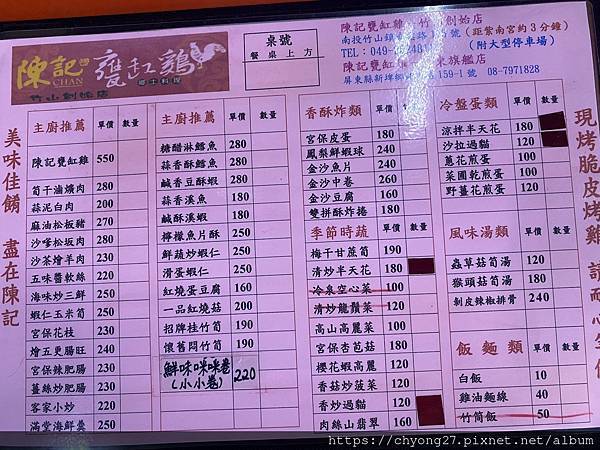 陳記
CHAN
甕缸雞
鄉土料理
竹山創始店
美味佳餚 盡在陳記
桌號
餐桌上方
陳記甕缸雞
創始店
(距紫南宮約3分鐘)
南投竹山鎮
號
(附大型停車場)
TEL:049-
陳記甕缸
旗艦店
屏東縣新埤鄉
159-1 號 08-7971828
主廚推薦 單價 數量
陳記甕缸雞 550
筍干滷爌肉 280
蒜泥白肉 200
麻油松板豬 270
沙嗲松坂肉 280
沙茶燴羊肉 230
五味醬軟絲 220
海味炒三鮮 250
蝦仁玉米筍 250
宮保花枝 230
燴五更腸旺 240
宮保辣肥腸 230
薑絲炒肥腸 230
客家小炒 220
滿堂海鮮羹 250
主廚推薦 單價 數量
糖醋淋鱈魚 280
蒜香酥鱈魚 280
鹹香豆酥蝦 280
蒜香溪魚 180
鹹酥溪蝦 180
檸檬魚片酥 250
鮮蔬炒蝦仁 250
滑蛋蝦仁 250
紅燒蛋豆腐 160
一品紅燒菇 200
招牌桂竹筍 190
懷舊悶竹筍 190
鮮味咪咪卷
(小小卷) 220
香酥炸類 單價 數量
宮保皮蛋 180
鳳梨鮮蝦球 240
金沙魚片 240
金沙中卷 260
金沙豆腐 180
雙拼酥炸捲 180
季節時蔬 單價 數量
梅干甘蔗筍 190
清炒半天花 180
冷泉空心菜 100
清炒龍鬚菜 100
高山高麗菜 100
宮保杏苞菇 180
櫻花蝦高麗 120
香菇炒菠菜 120
香炒過貓 120
肉絲山翡翠 160
冷盤蛋類 單價 數量
涼拌半天花 180
沙拉過貓 120
蔥花煎蛋 100
菜圃乾煎蛋 100
野薑花煎蛋 120
風味湯類 單價 數量
蟲草菇筍湯 120
猴頭菇筍湯 180
剝皮辣椒排骨 240
飯麵類 單價 數量
白飯 10
雞油麵線 40
竹筒飯 50
現烤脆皮烤雞 請耐心等
https://chyong27.pixnet.net/album